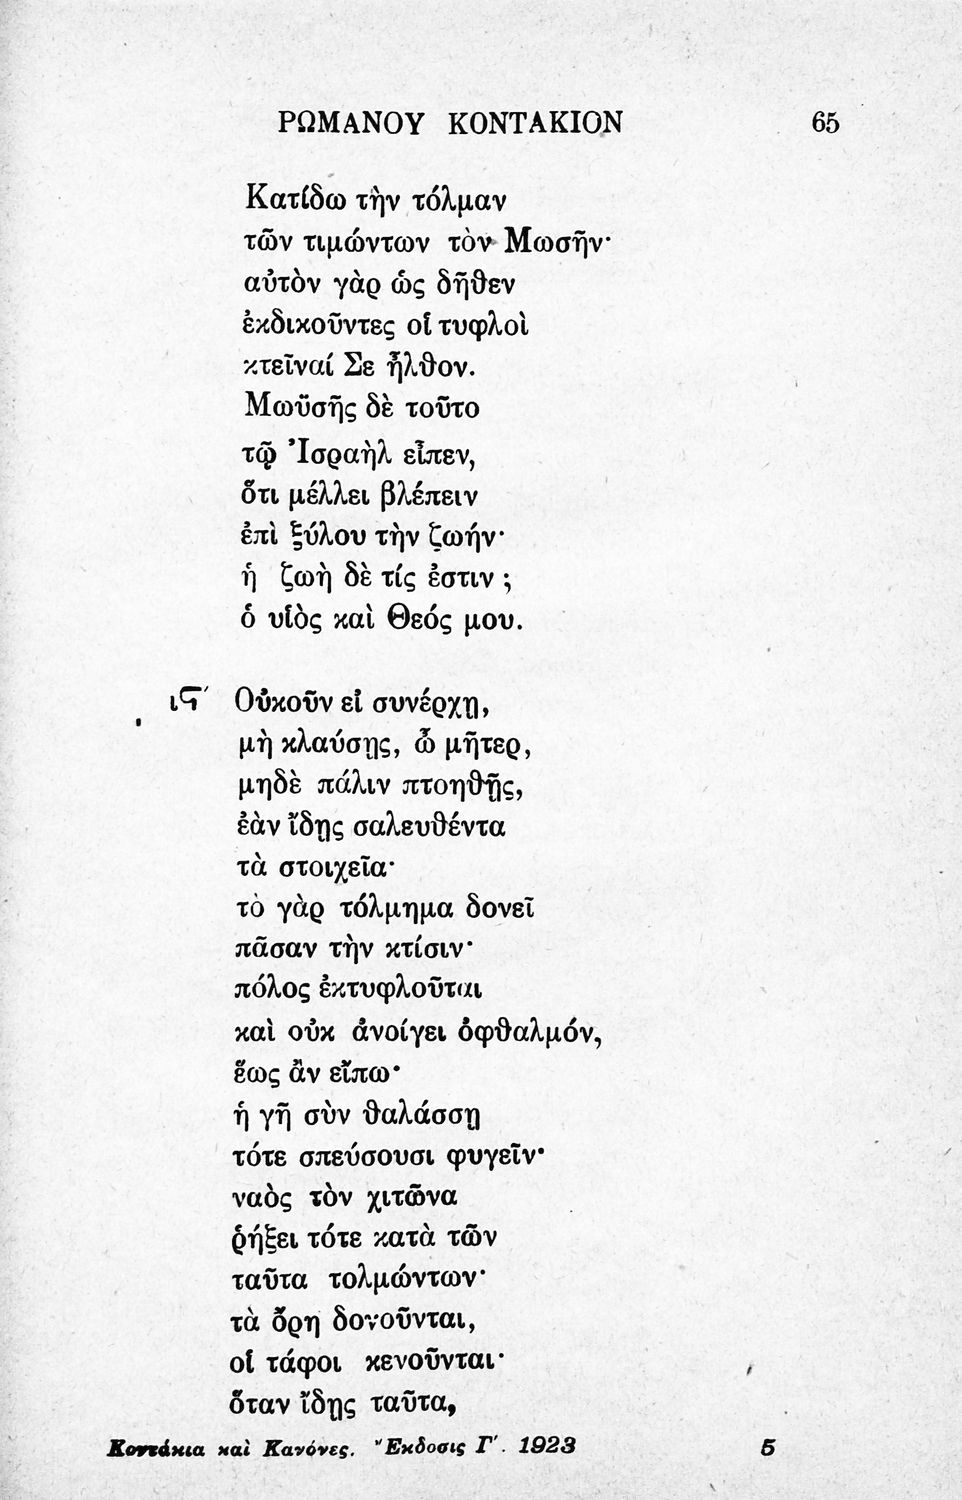 ΡΩΜΑΝΟΥ ΚΟΝΤΑΚΙΟΝ 65
Κατίδω τὴν τόλμαν
τῶν τιμώντων τὸν Μωσῆν·
αὐτὸν γὰρ ὡς δῆθεν
ἐκδικοῦντες οἱ τυφλοὶ
κτεῖναί Σε ἦλθον.
Μωϋσῆς δὲ τοῦτο
τῷ Ἰσραὴλ εἶπεν,
ὅτι μέλλει βλέπειν
ἐπὶ ξύλου τὴν ζωήν·
ἡ ζωὴ δὲ τίς ἐστιν ;
ὁ υἱὸς καὶ Θεός μου.
ιϚ´ Οὐκοῦν εἰ συνέρχῃ,
μὴ κλαύσῃς, ὦ μῆτερ,
μηδὲ πάλιν πτοηθῇς,
ἐὰν ἴδῃς σαλευθέντα
τὰ στοιχεῖα·
τὸ γὰρ τόλμημα δονεῖ
πᾶσαν τὴν κτίσιν·
πόλος ἐκτυφλοῦται
καὶ οὐκ ἀνοίγει ὀφθαλμόν,
ἕως ἂν εἴπω·
ἡ γῆ σὺν θαλάσσῃ
τότε σπεύσουσι φυγεῖν·
ναὸς τὸν χιτῶνα
ῥήξει τότε κατὰ τῶν
ταῦτα τολμώντων·
τὰ ὄρη δονοῦνται,
οἱ τάφοι κενοῦνται·
ὅταν ἴδῃς ταῦτα,
Κοντάκια καὶ Κανόνες. Ἔκδοσις Γ΄. 1923 5